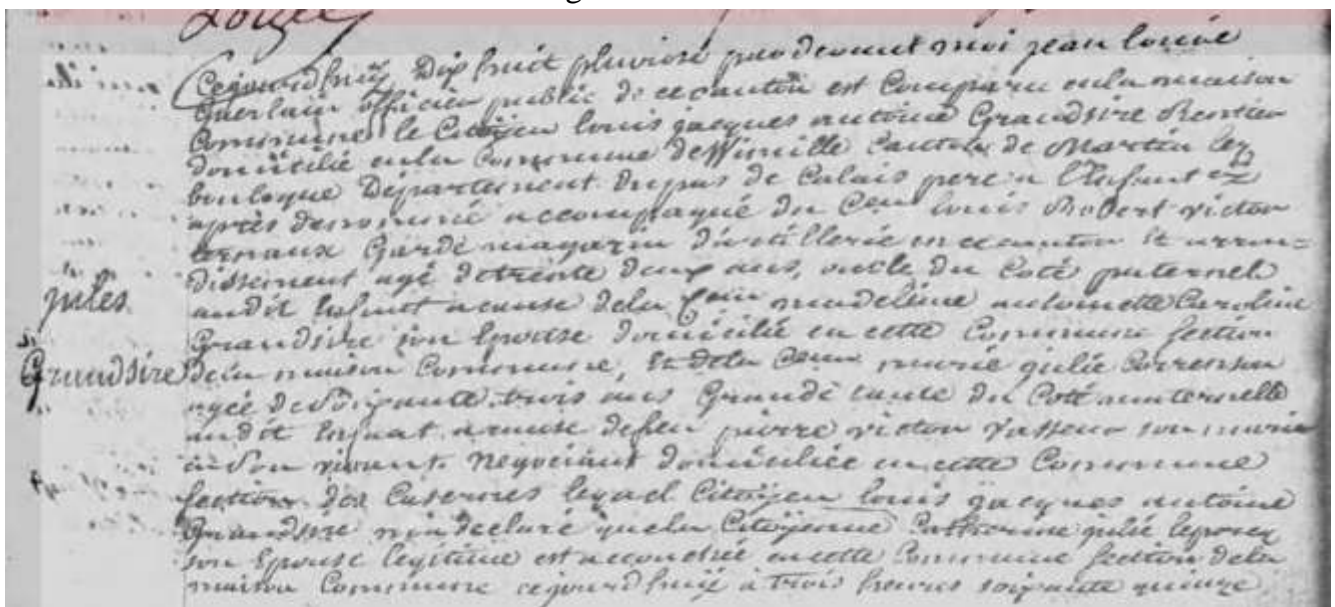 Cejourd'huy Dix huit pluviose pardevant moi jean louis
Guerlain officier public de ce canton est Comparu en la maison
Commune le Citoyen louis jacques antoine Grandsire Rentier
domicilié en la Commune de Wimille Canton de Martin lez
boulogne Département du pas de Calais pere a l'Enfant cy
après denommé accompagné du Cen louis Robert victor
ternaux Garde magazin d'artillerie en ce canton et arron=
dissement agé de trente deux ans, oncle du Coté paternel
jules
audit Enfant a cause de la Cenne madeleine antoinette Caroline
Grandsire son Epouse domiciliée en cette Commune section
Grandsire
de la maison Commune, et de la Cenne marie julie
agée de soixante trois ans Grande tante du Coté maternelle
audit Enfant a cause de feu pierre victor Vasseur son marie
en son vivant Negociant domiciliée en cette Commune
section des Casernes lequel Citoyen louis jacques antoine
Grandsire m'a declaré que la Citoyenne Catherine julie
son Epouse legitime est accouchée en cette Commune section de la
maison Commune cejourd'huy à trois heures soixante quinze